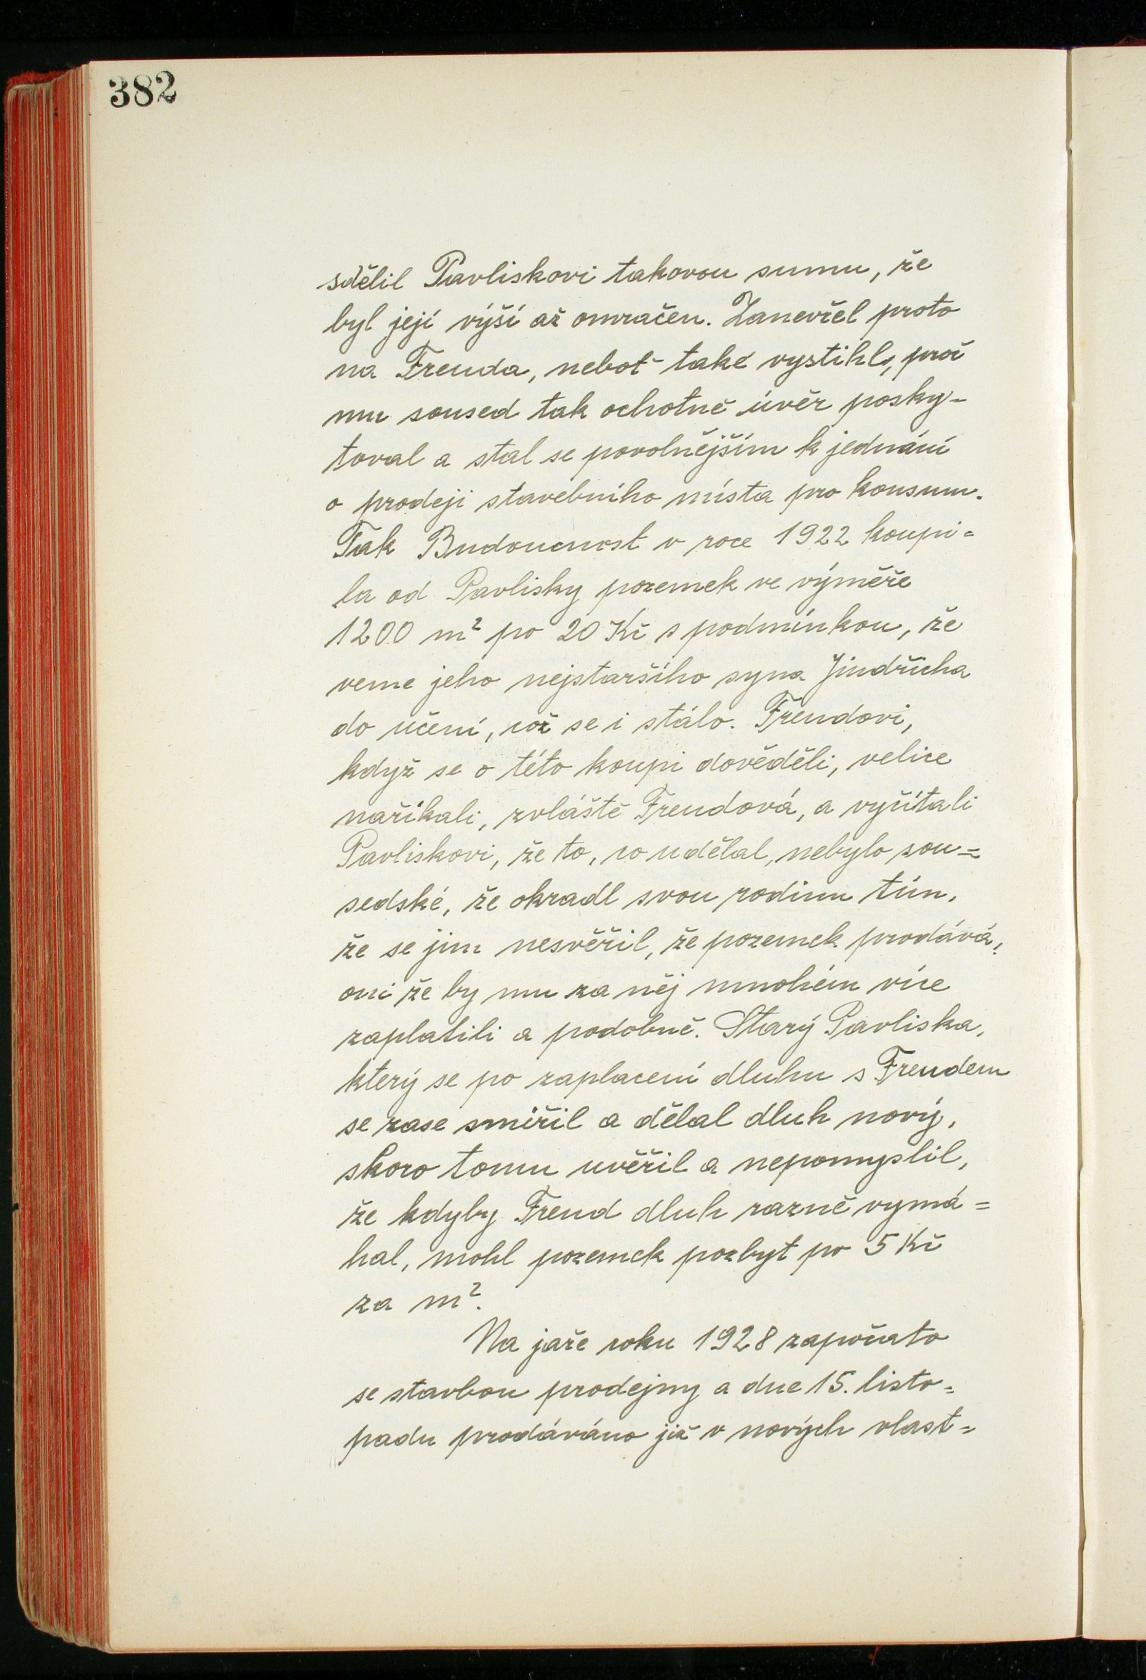 382
sdělil Pavliskovi takovou sumu, že
byl její výší až omračen. Zanevřel proto
na Freuda, neboť také vystihl, proč
mu soused tak ochotně úvěr posky-
toval a stal se povolnějším k jednání
o prodeji stavebního místa pro konsum.
Tak Budoucnost v roce 1922 koupi-
la od Pavlisky pozemek ve výměře
1200 m² po 20 Kč s podmínkou, že
veme jeho nejstaršího syna Jindřicha
do učení, což se i stálo. Freudovi,
když se o této koupi dověděli, velice
naříkali, zvláště Freudová, a vyčítali
Pavliskovi, že to, co udělal, nebylo sou=
sedské, že okradl svou rodinu tím,
že se jim nesvěřil, že pozemek prodává,
oni že by mu za něj mnohém více
zaplatili a podobně. Starý Pavliska,
který se po zaplacení dluhu s Freudem
se zase smířil a dělal dluh nový,
skoro tomu uvěřil a nepomyslil,
že kdyby Freud dluh rázně vymá=
hal, mohl pozemek pozbyt po 5 Kč
za m².
Na jaře roku 1928 započato
se stavbou prodejny a dne 15. listo=
padu prodáváno již v nových vlast=